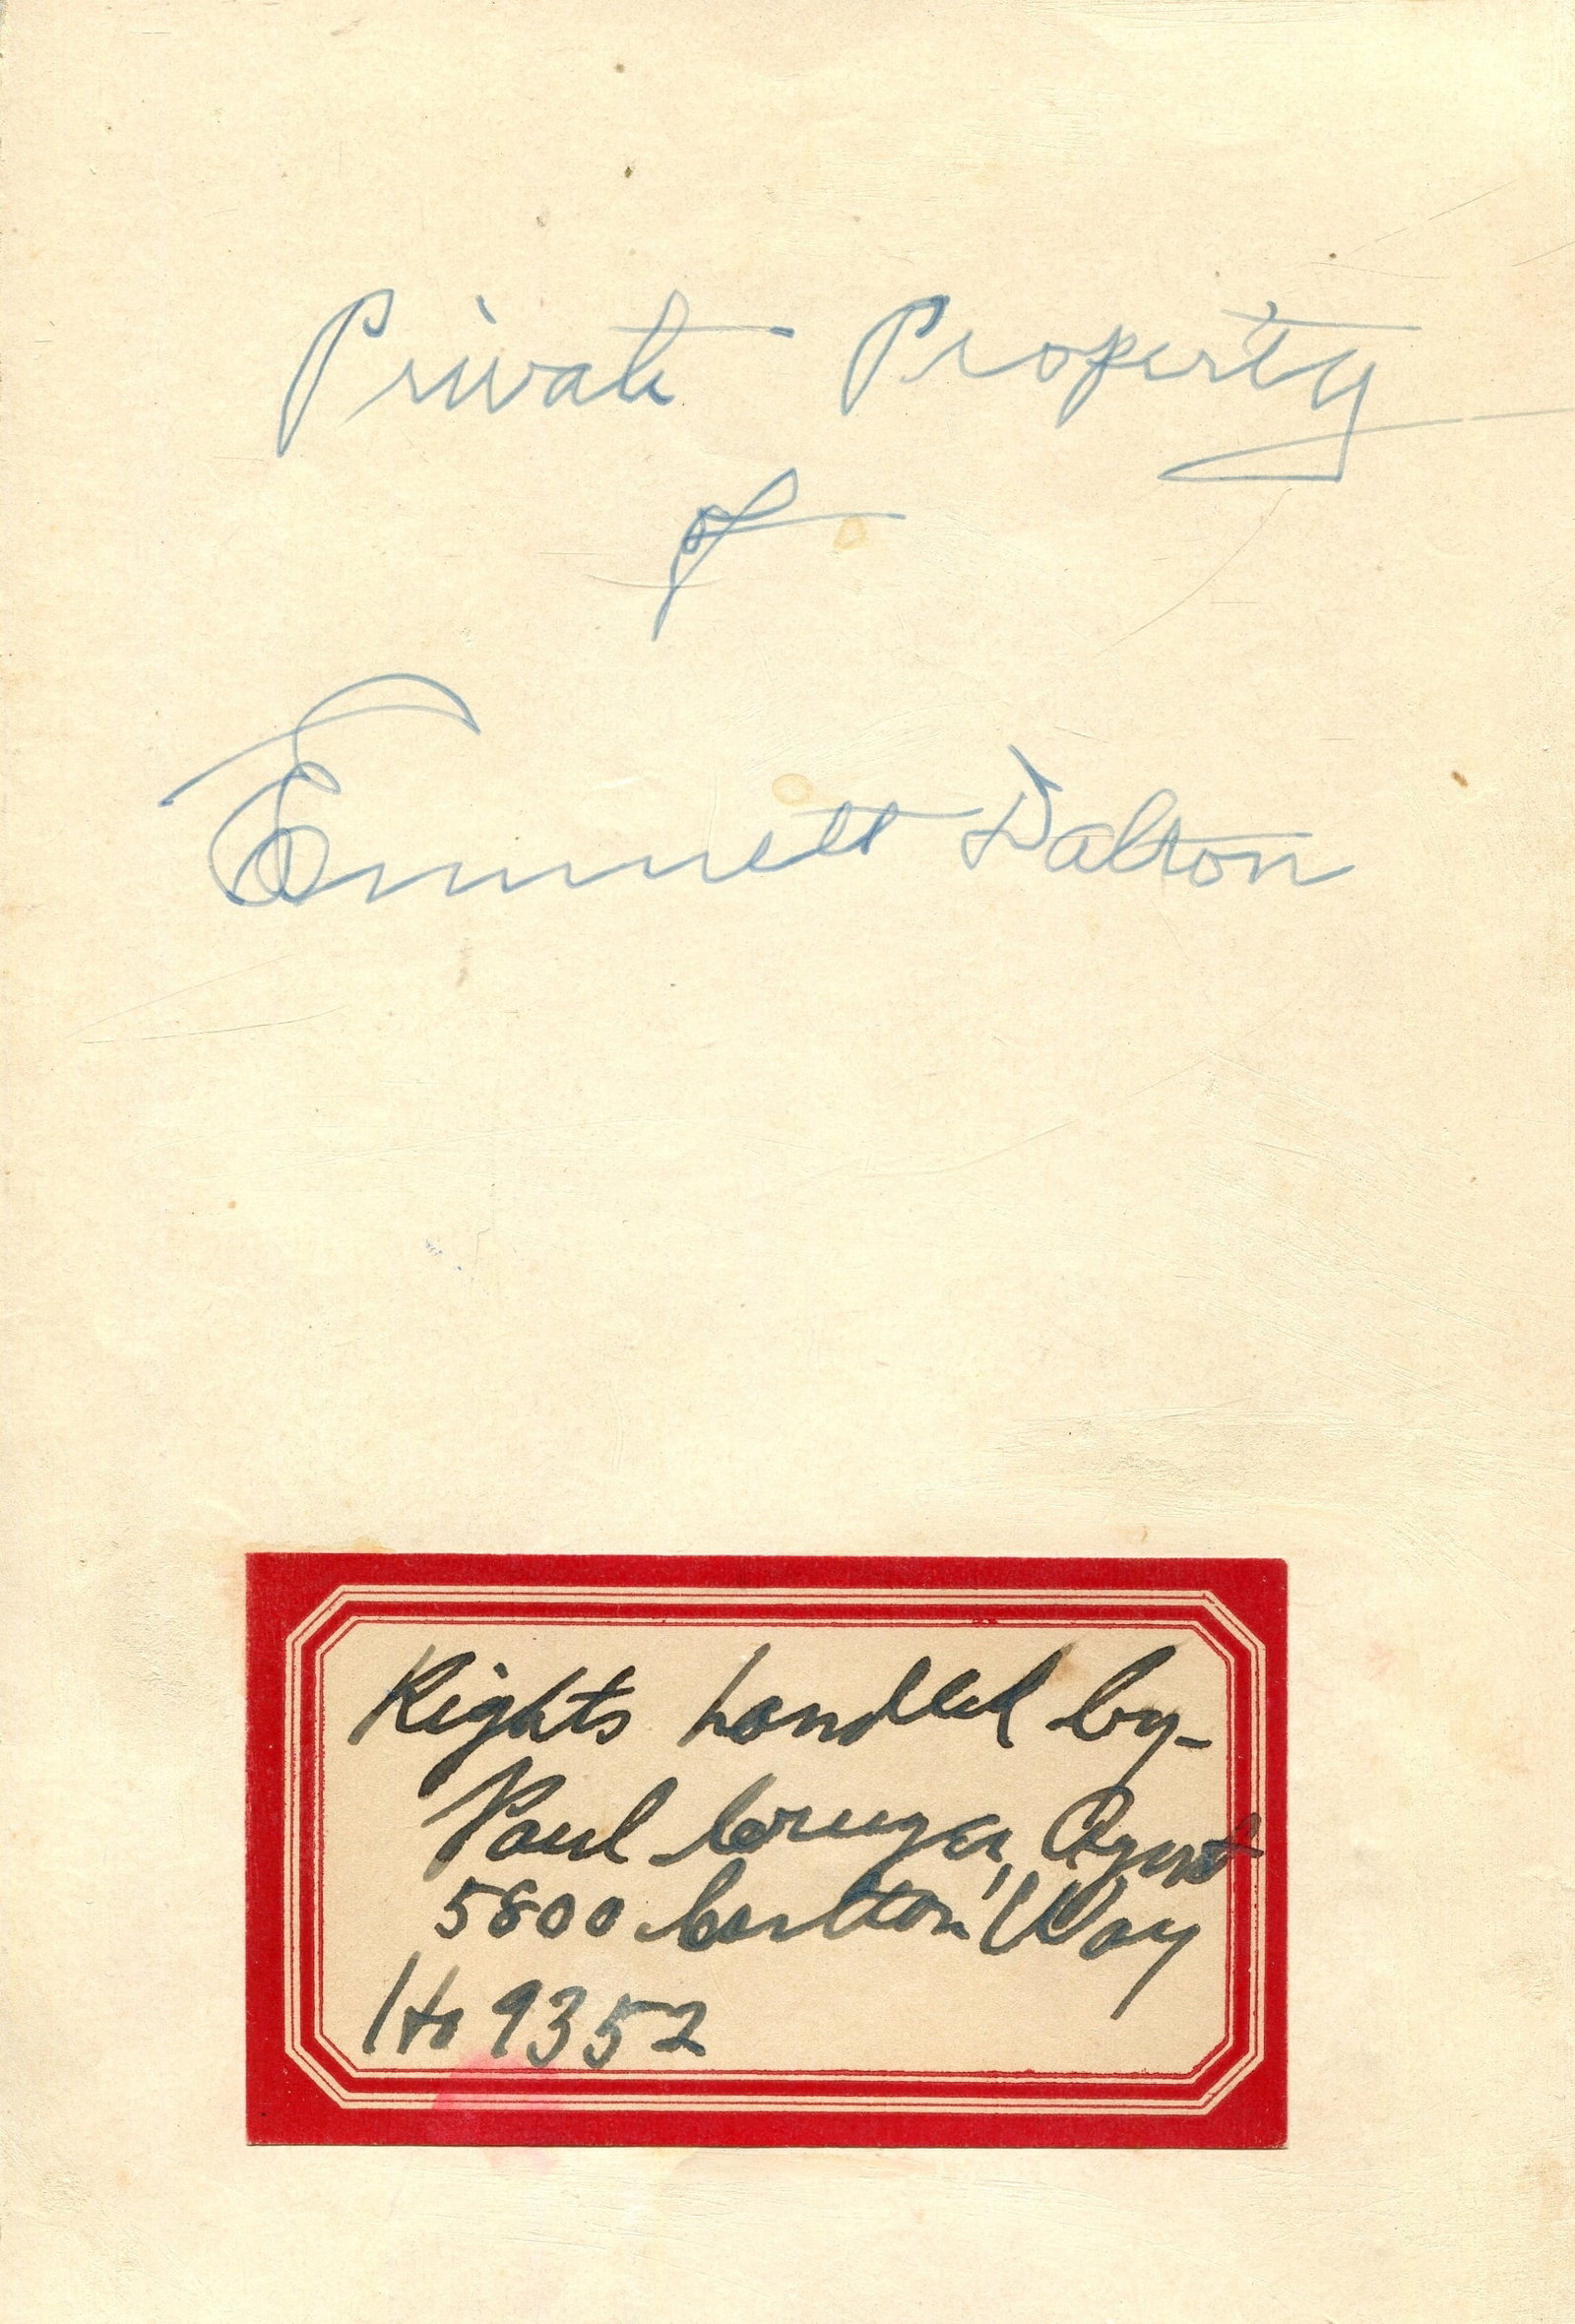 Private Property
of
Emmett Dalton
Rights handled by-
Paul Cruger, Agent
5800 Carlton Way
Ho 9352